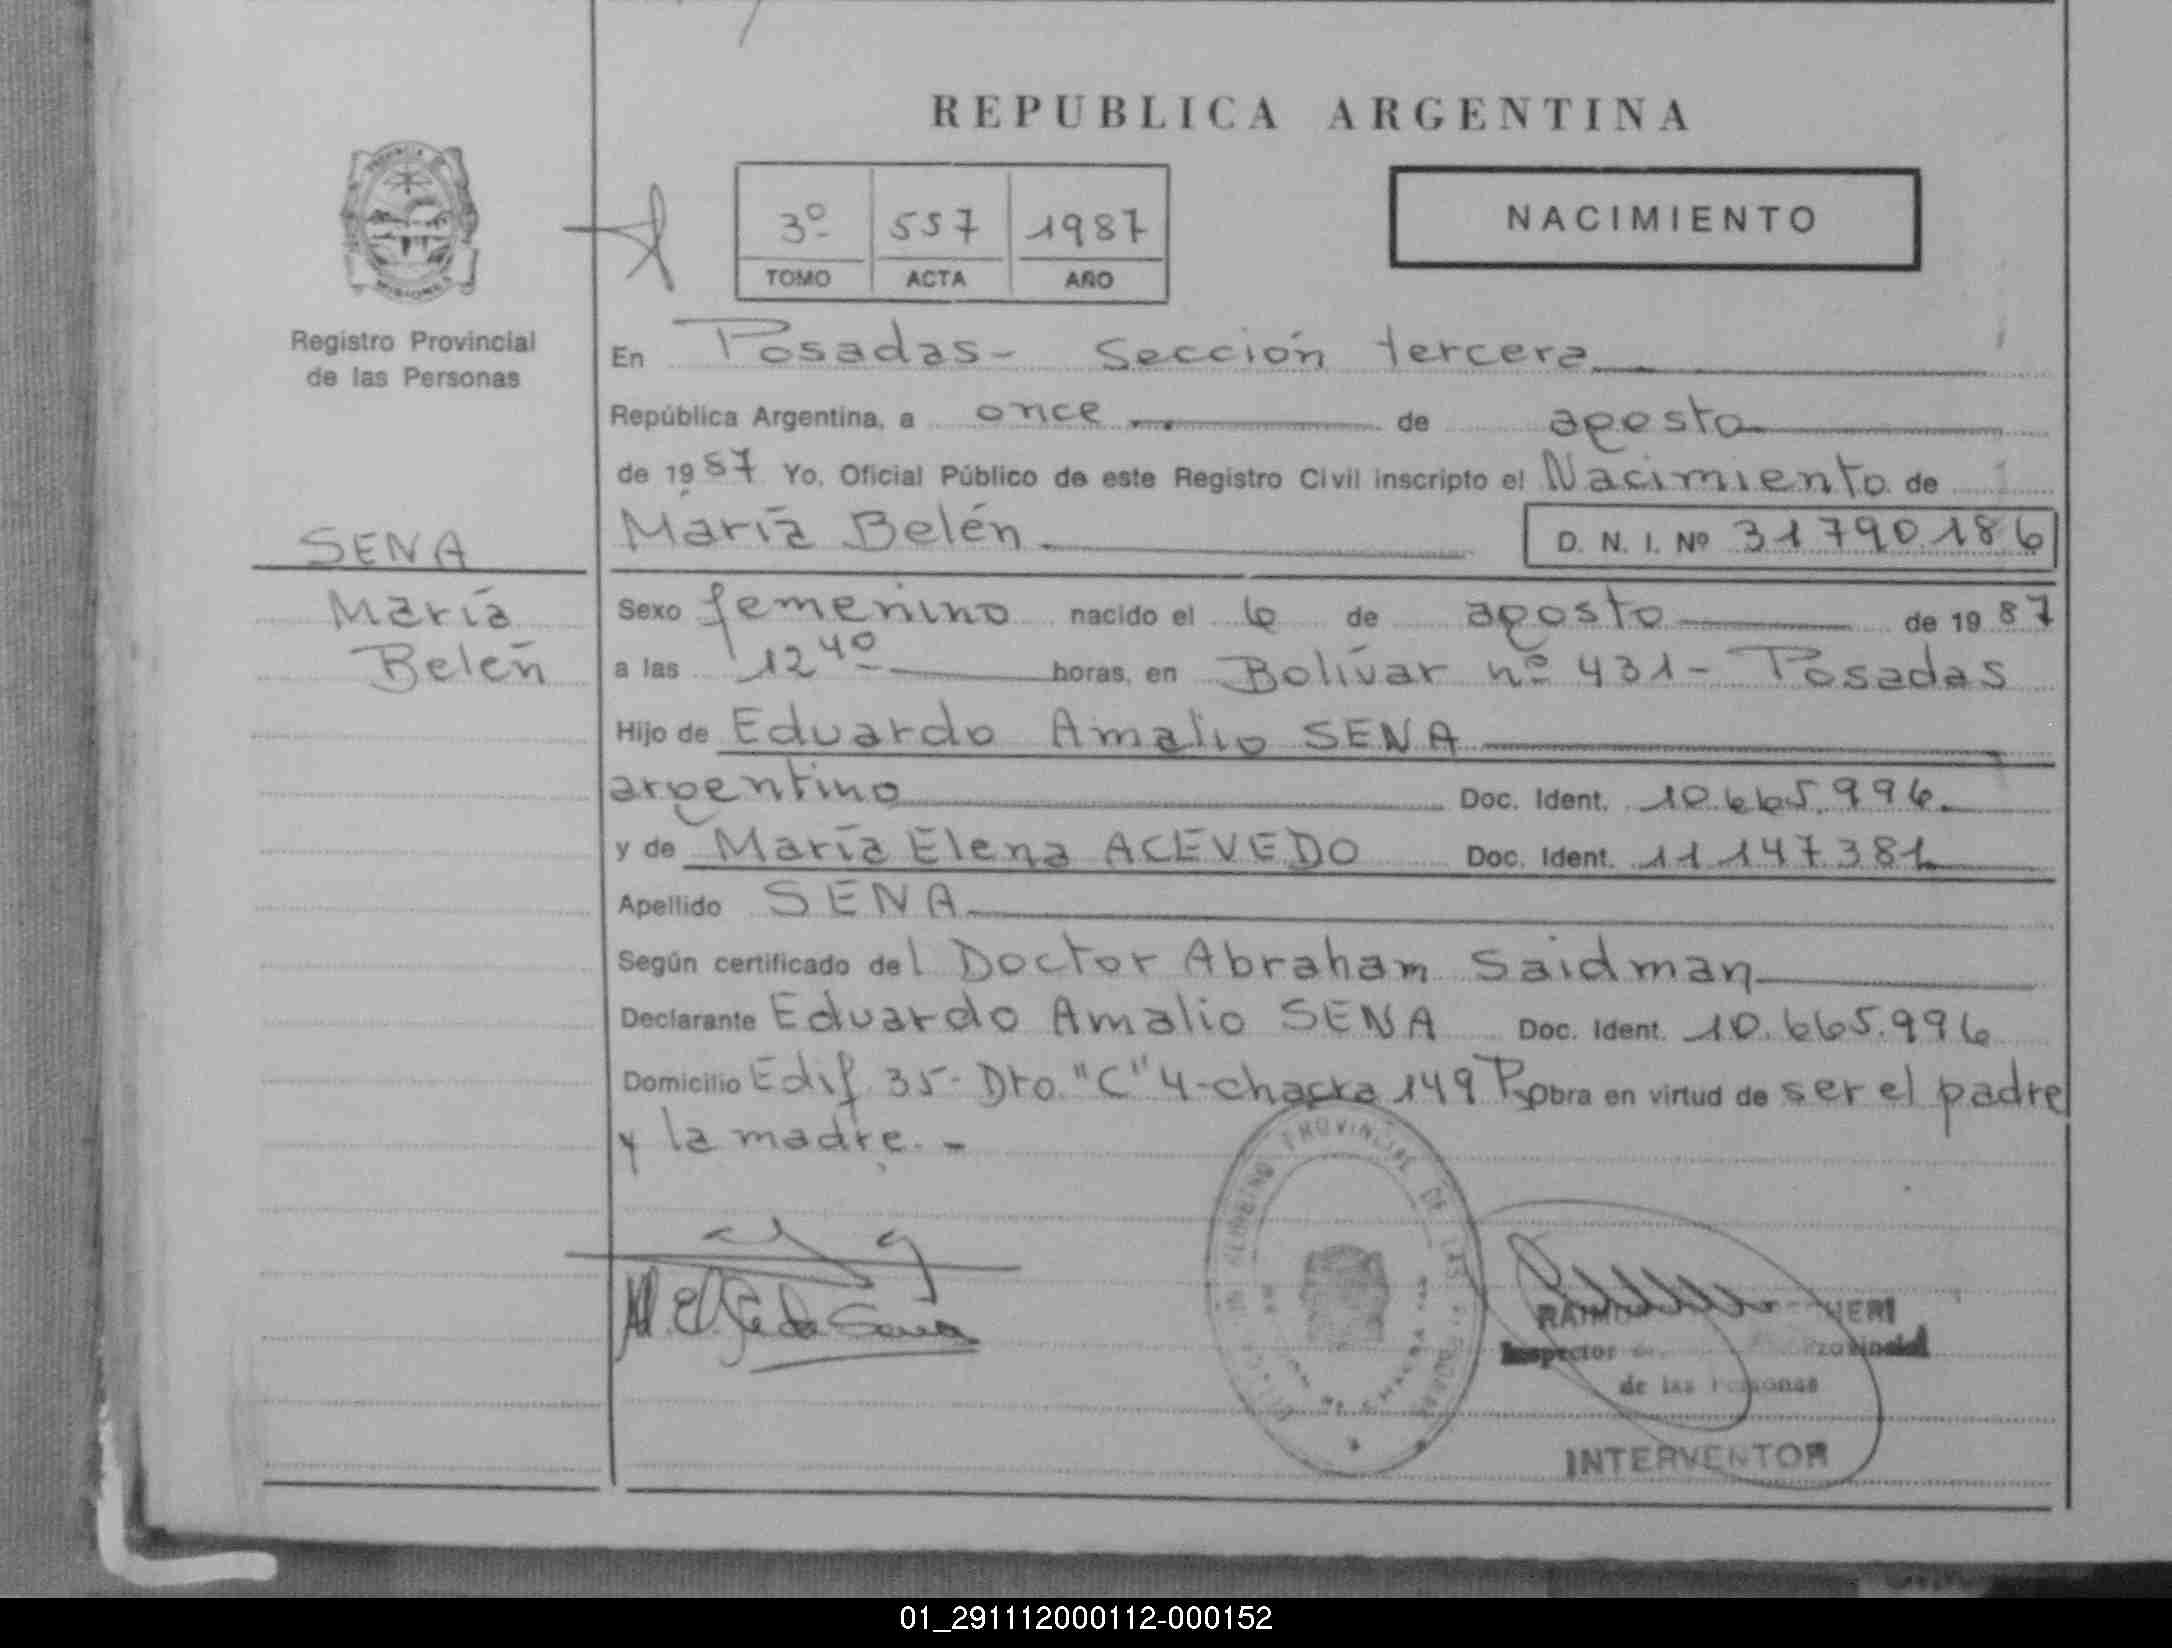 REPUBLICA ARGENTINA
3º 557 1987
TOMO ACTA AÑO
NACIMIENTO
MISIONES
Registro Provincial
de las Personas
SENA
María
Belén
En Posadas- Sección tercera
República Argentina, a once de agosto
de 1987 Yo, Oficial Público de este Registro Civil inscripto el Nacimiento de
María Belén D. N. I. Nº 31790186
Sexo femenino nacido el 6 de agosto de 1987
a las 12 40 horas, en Bolívar nº 431- Posadas
Hijo de Eduardo Amalio SENA
argentino Doc. Ident. 10.665.996.
y de María Elena ACEVEDO Doc. Ident. 11.147.381
Apellido SENA
Según certificado del Doctor Abraham Saidman
Declarante Eduardo Amalio SENA Doc. Ident. 10.665.996
Domicilio Edif 35- Dto. "C" 4-chacra 149 obra en virtud de ser el padre
y la madre.-
PROVINCIAL DE LAS
Inspector Provincial
de las Personas
INTERVENTOR
01_291112000112-000152